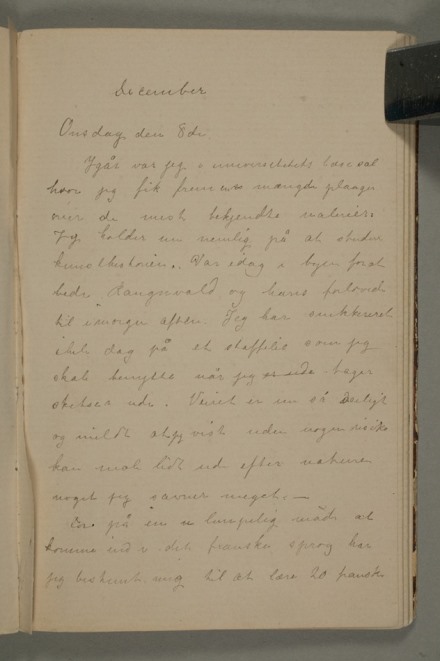 December
Onsdag den 8de
Igår var jeg i universitetets læsesal
hvor jeg fik frem en mængde plancher
over de mest bekjendte malerier.
Jeg holder nu nemlig på at studere
kunsthistorien. Var idag i byen forat
bede Langsvald og hans forlovede
til imorgen aften. Jeg har snekkeret
idag på et staffelie som jeg
skal benytte når jeg tager
skitser ude. Veiret er nu så deiligt
og mildt at jeg vist uden nogen risiko
kan male lidt ude efter naturen
noget jeg savner meget. —
En på en lempelig måde at
komme ind i det franske sprog har
jeg bestemt mig til at lære 20 franske